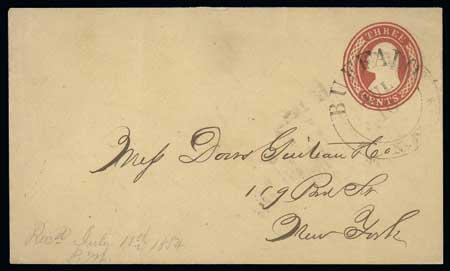 THREE
CENTS
BUFFALO
Mess Dows Guiteau & Co
119 Brd St
New York
Recd July 18th 1854
P.M.